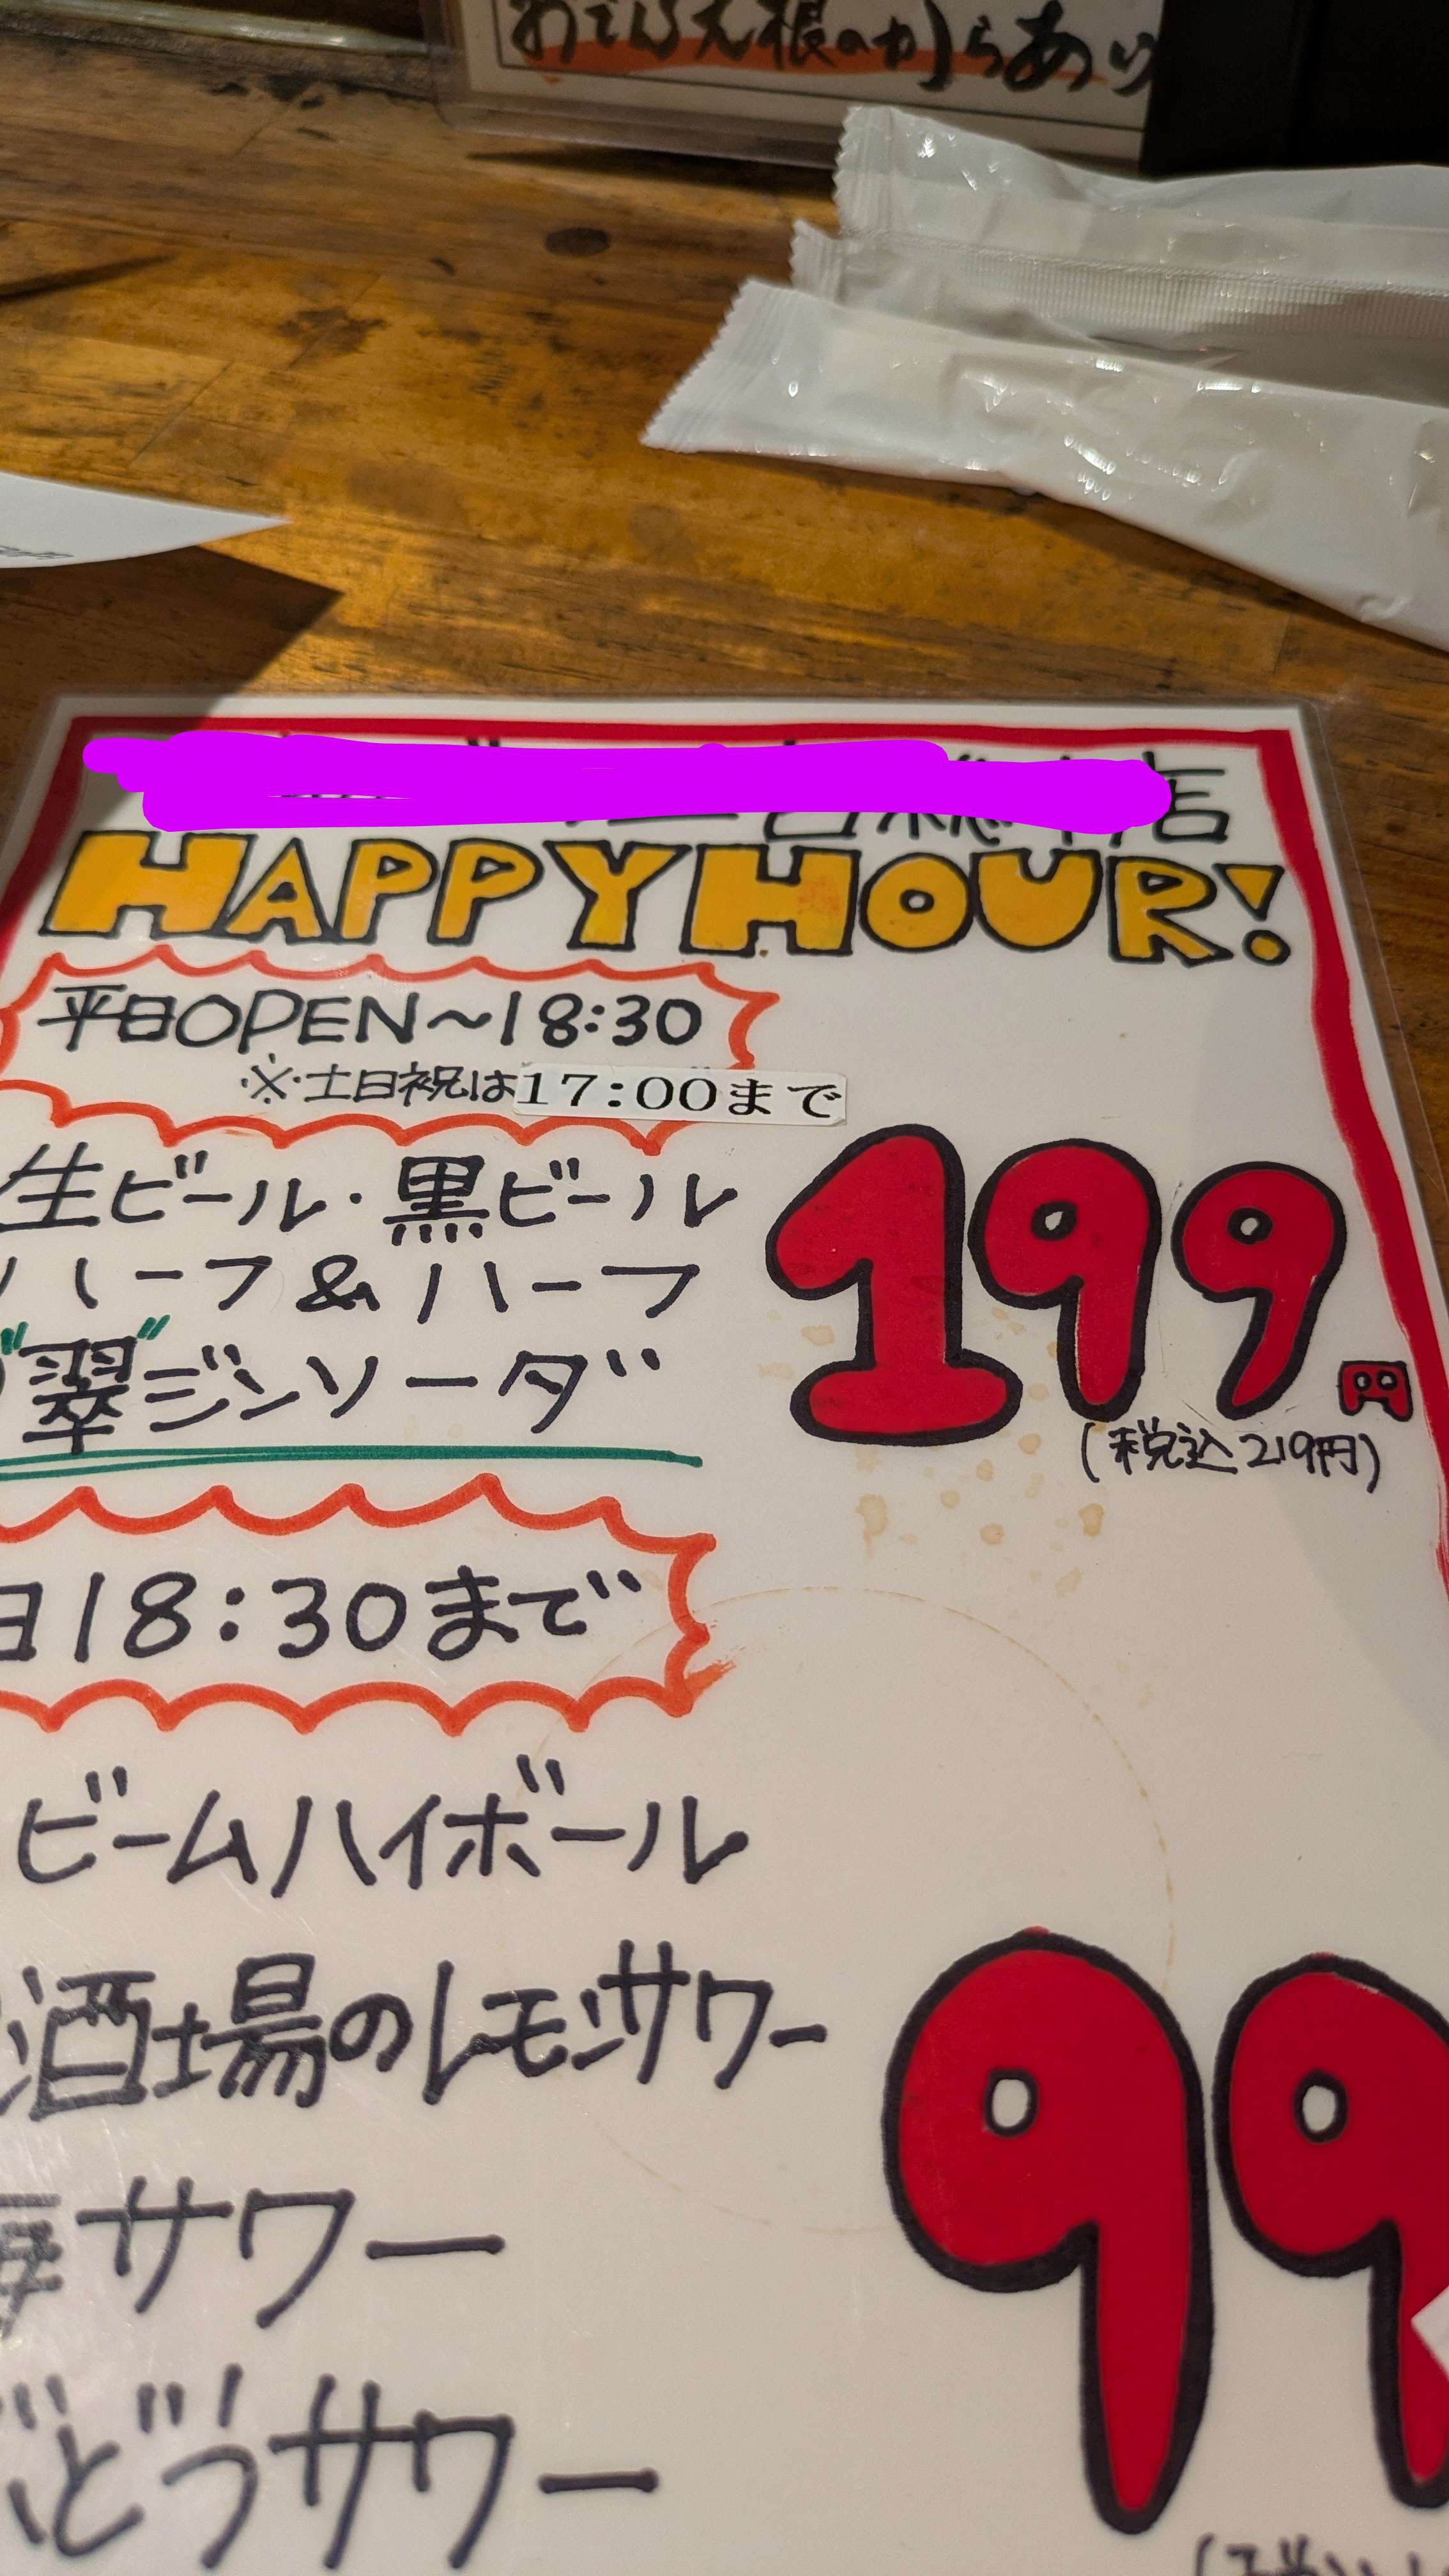 おでん大根のから
HAPPY HOUR!
平日OPEN~18:30
※土日祝は17:00まで
生ビール・黒ビール
ハーフ&ハーフ
"翠"ジンソーダ
199円
(税込219円)
日18:30まで
ビームハイボール
酒場のレモンサワー
サワー
99
どうサワー